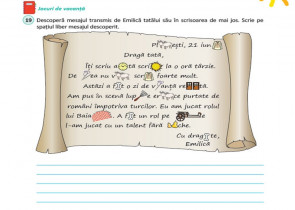 Jocuri de vacanță
10 Descoperă mesajul transmis de Emilică tatălui său în scrisoarea de mai jos. Scrie pe
spațiul liber mesajul descoperit.
P ești, 21 iun
Dragă tată,
Îți scriu a tă scri a la o oră târzie.
De ea nu v scri foarte mult.
Astăzi a f t o zi de v nță re tă.
Am pus în scenă lup e purtate de
români împotriva turcilor. Eu am jucat rolul
lui Baia . A f t un rol pe
l-am jucat cu un talent fără che.
Cu drag te,
Emilică